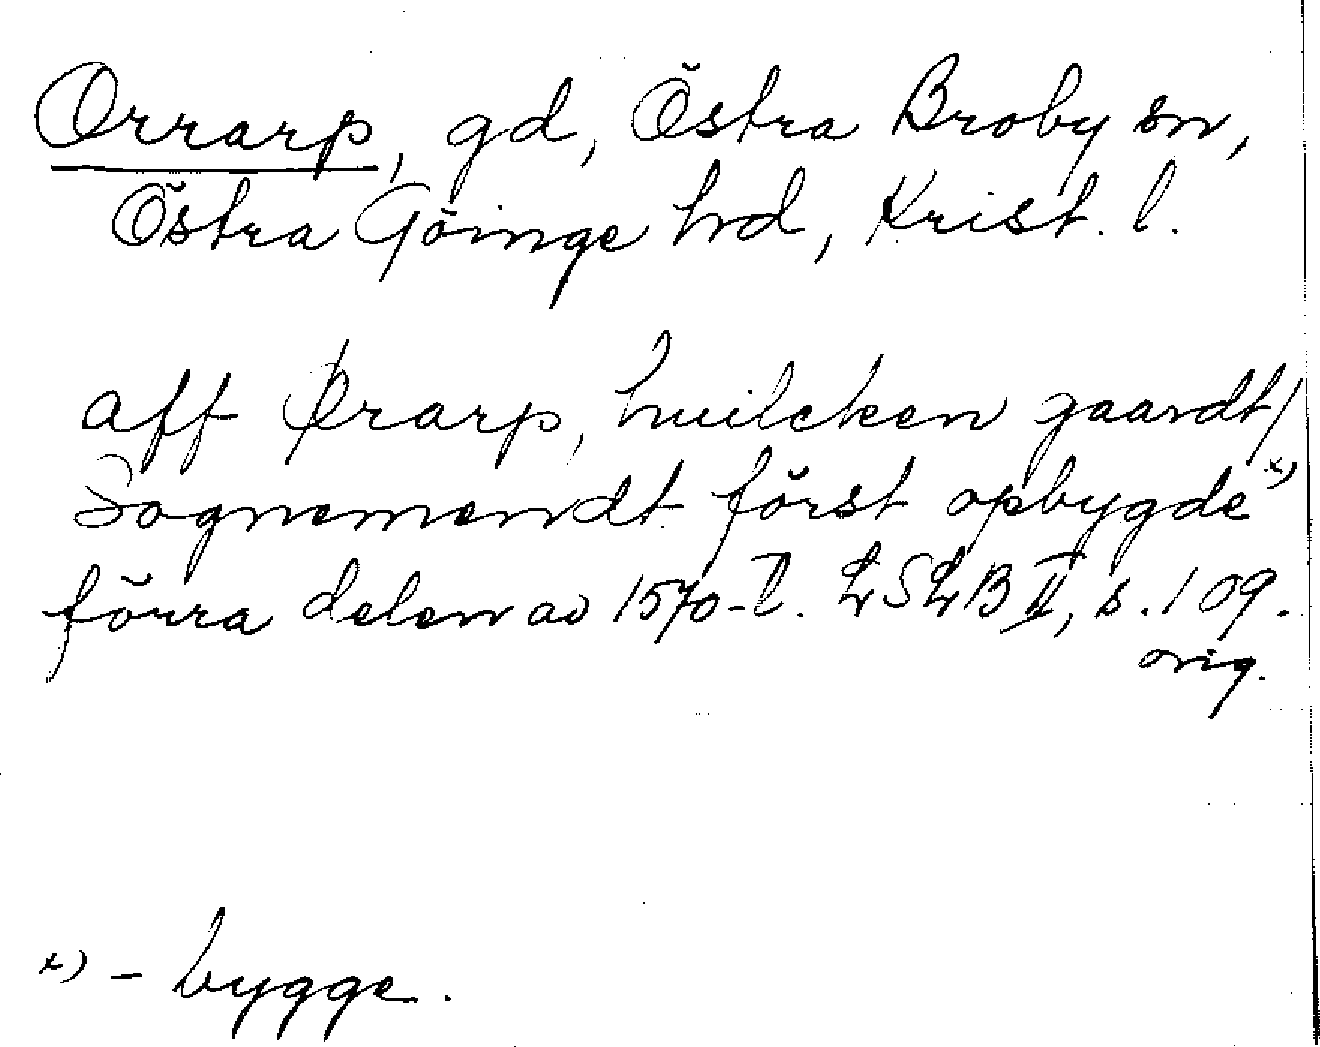 Orrarp, gd, Östra Broby sn,
Östra Göinge hrd, Krist. l.
aff Ørarp, huilcken gaardt/
Sognemendt först opbygde x)
förra delen av 1570-t. LSLB II, s. 109.
orig.
x) - bygge.